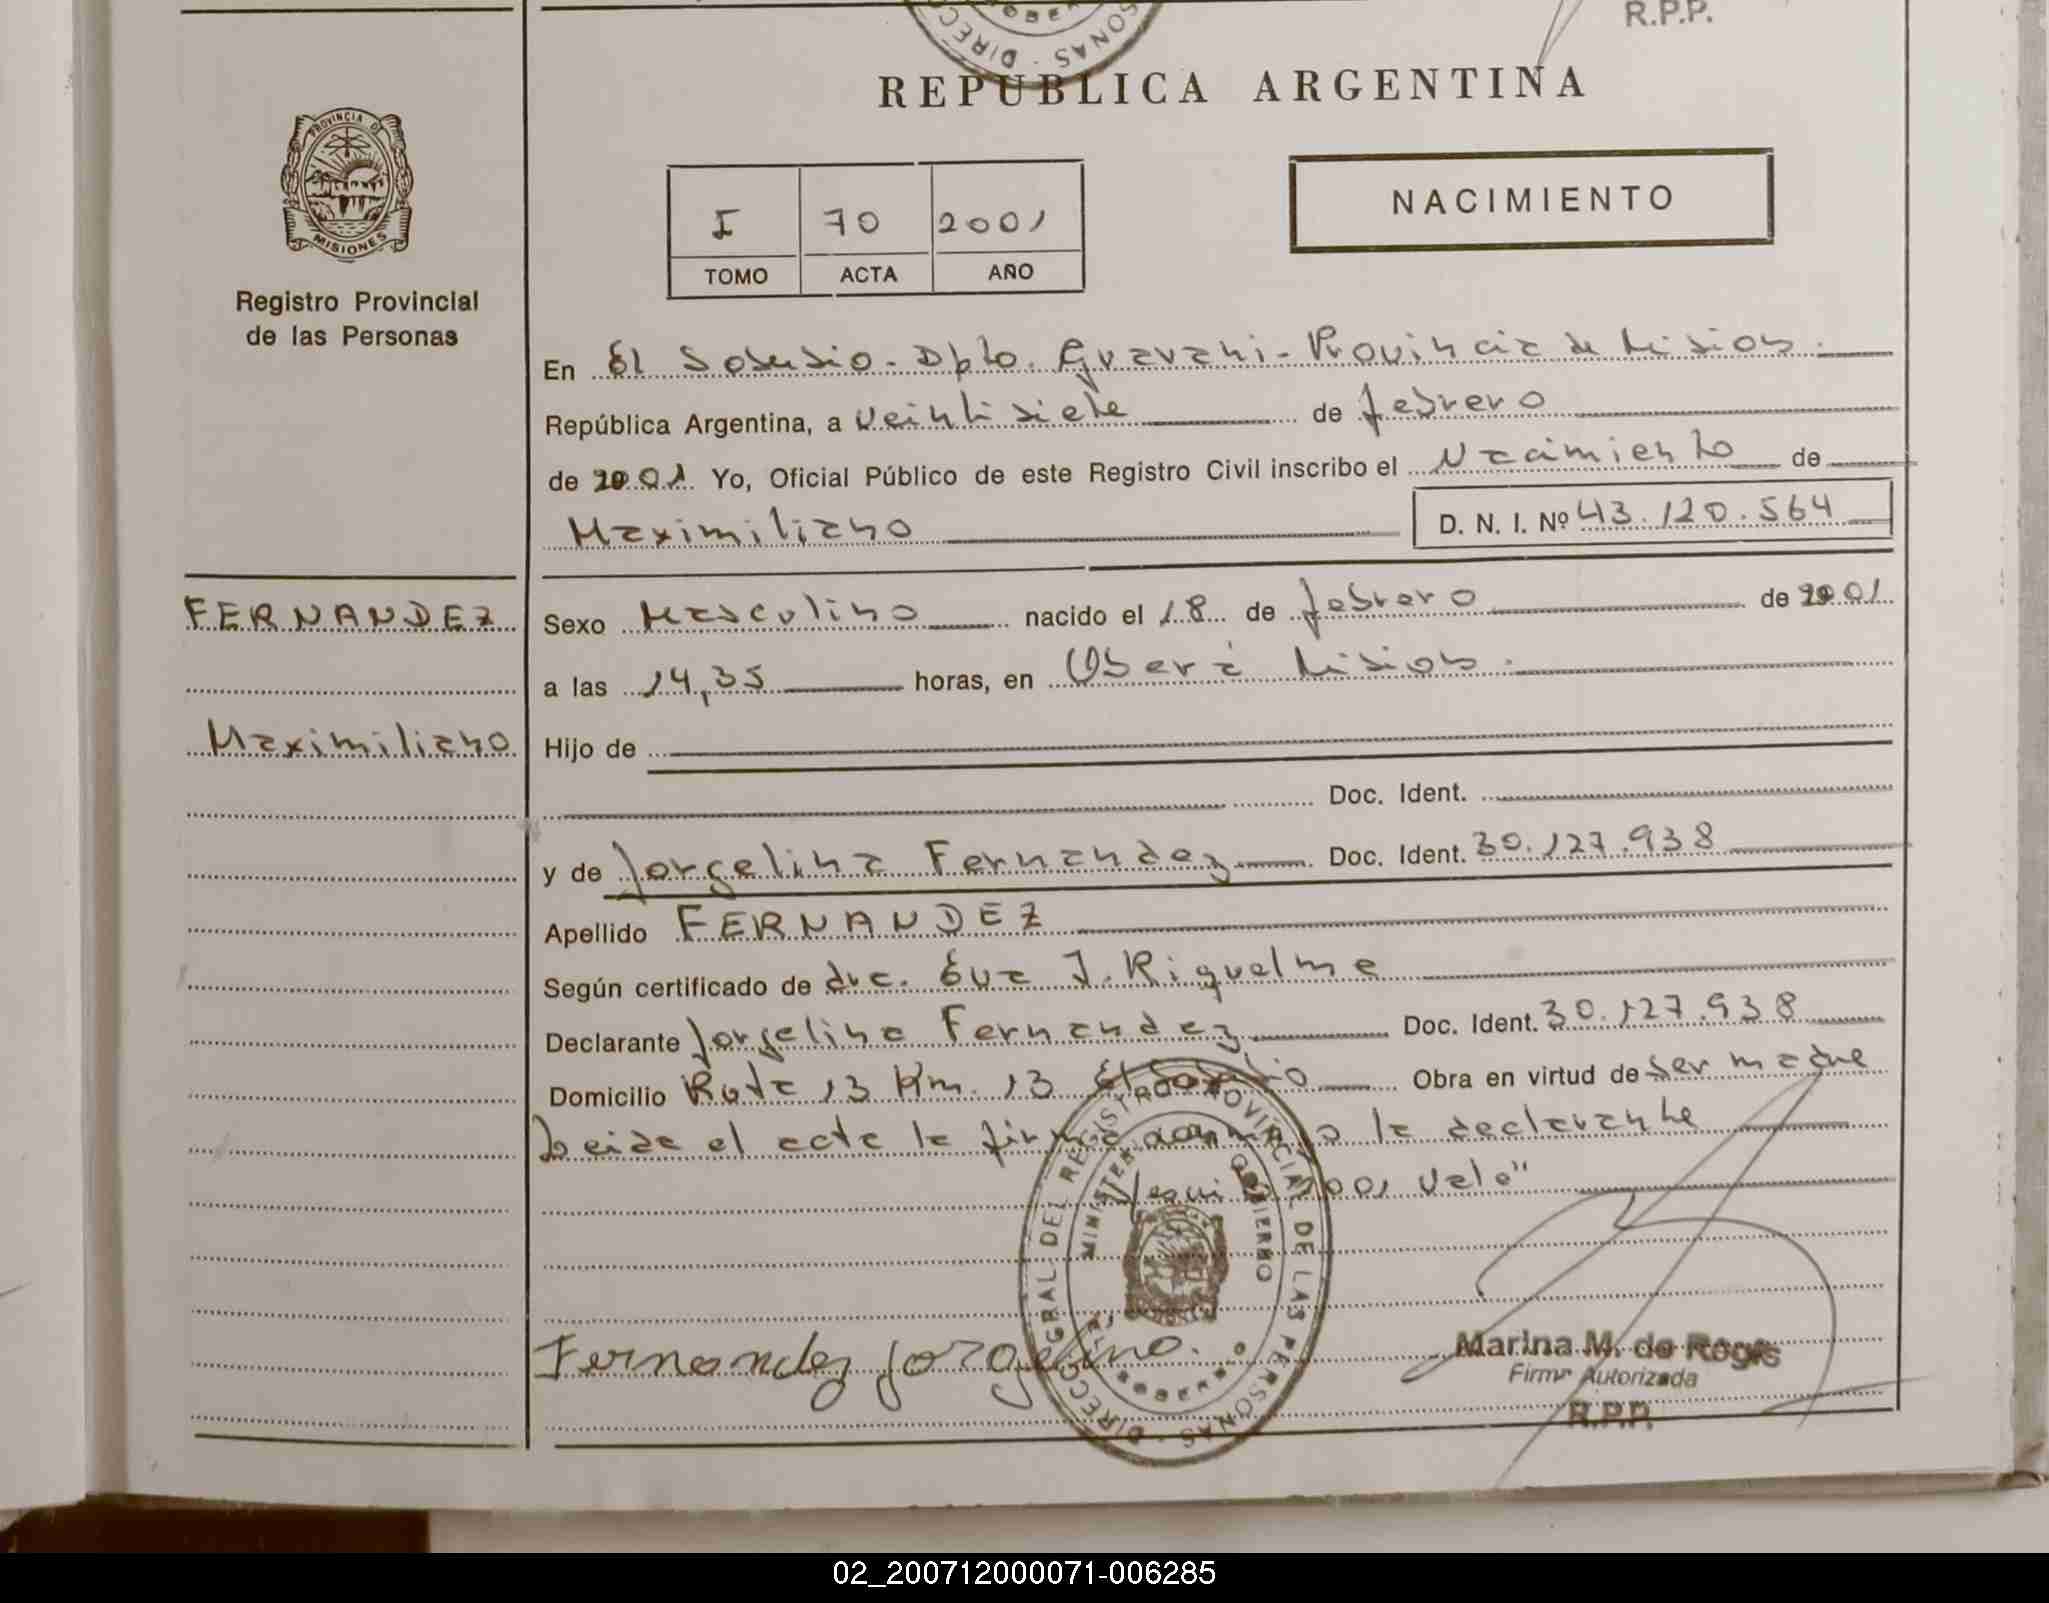 R.P.P.
REPUBLICA ARGENTINA
PROVINCIA DE
MISIONES
Registro Provincial
de las Personas
I 70 2001
TOMO ACTA AÑO
NACIMIENTO
En El Soberbio - Dpto. Guarani - Provincia de Misiones.
República Argentina, a veintisiete de febrero
de 2001 Yo, Oficial Público de este Registro Civil inscribo el Nacimiento de
Maximiliano D. N. I. Nº 43.120.564
FERNANDEZ
Maximiliano
Sexo Masculino nacido el 18 de febrero de 2001
a las 14,35 horas, en Oberá Misiones.
Hijo de
Doc. Ident.
y de Jorgelina Fernandez Doc. Ident. 30.127.938
Apellido FERNANDEZ
Según certificado de dra. Eva J. Riquelme
Declarante Jorgelina Fernandez Doc. Ident. 30.127.938
Domicilio Ruta 13 Km. 13 El Soberbio Obra en virtud de ser madre
Leida el acta la firma conmigo la declarante
2001 Vale"
DIRECC GRAL DEL REGISTRO PROVINCIAL DE LAS PERSONAS
MINISTERIO GOBIERNO
Fernandez Jorgelina.
Marina M. de Rogis
Firma Autorizada
R.P.P.
02_200712000071-006285